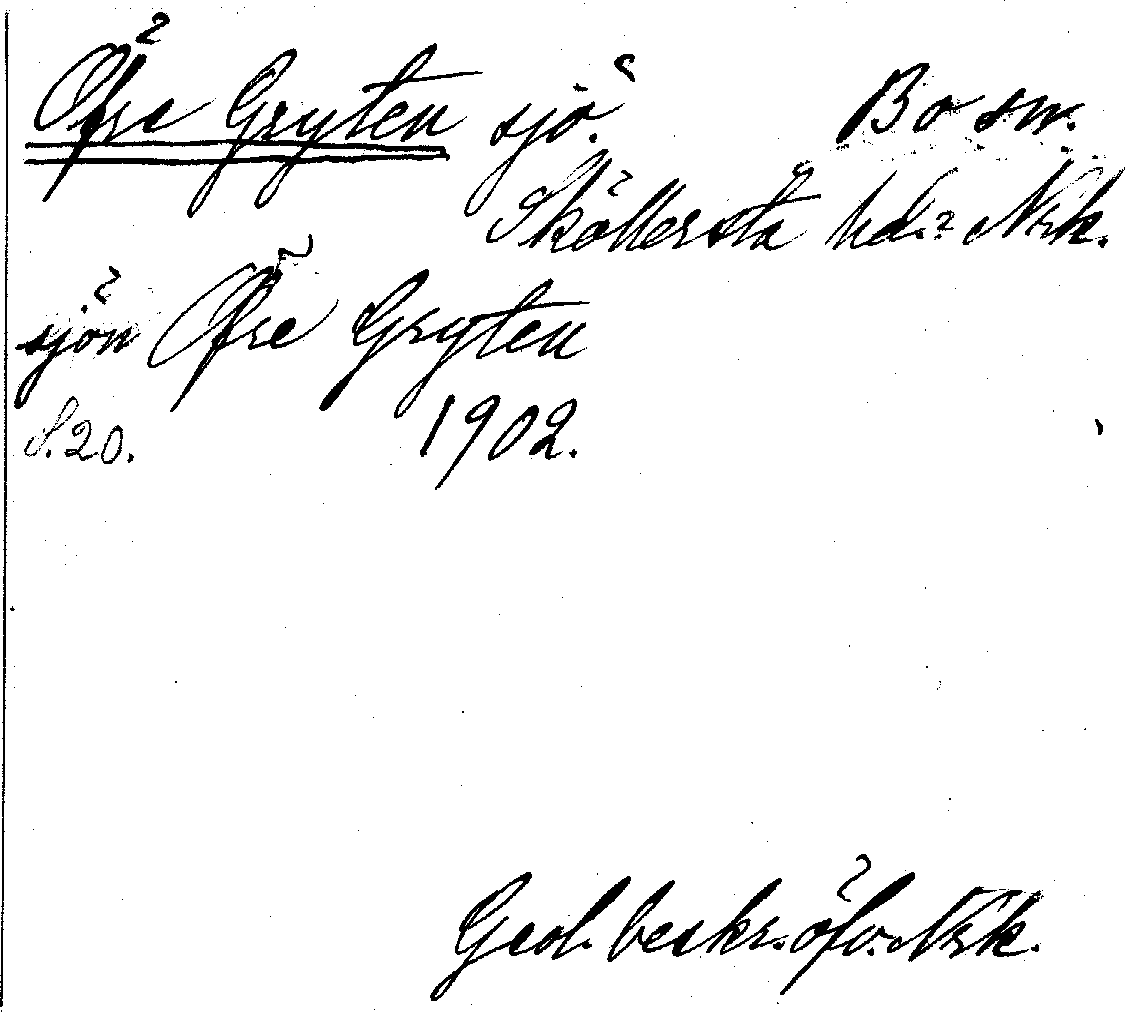 Öfre Gryten sjö. Bo sn.
Sköllersta hd. Nrk.
sjön Öfre Gryten
S.20. 1902.
Geol. beskr. öfv. Nrk.